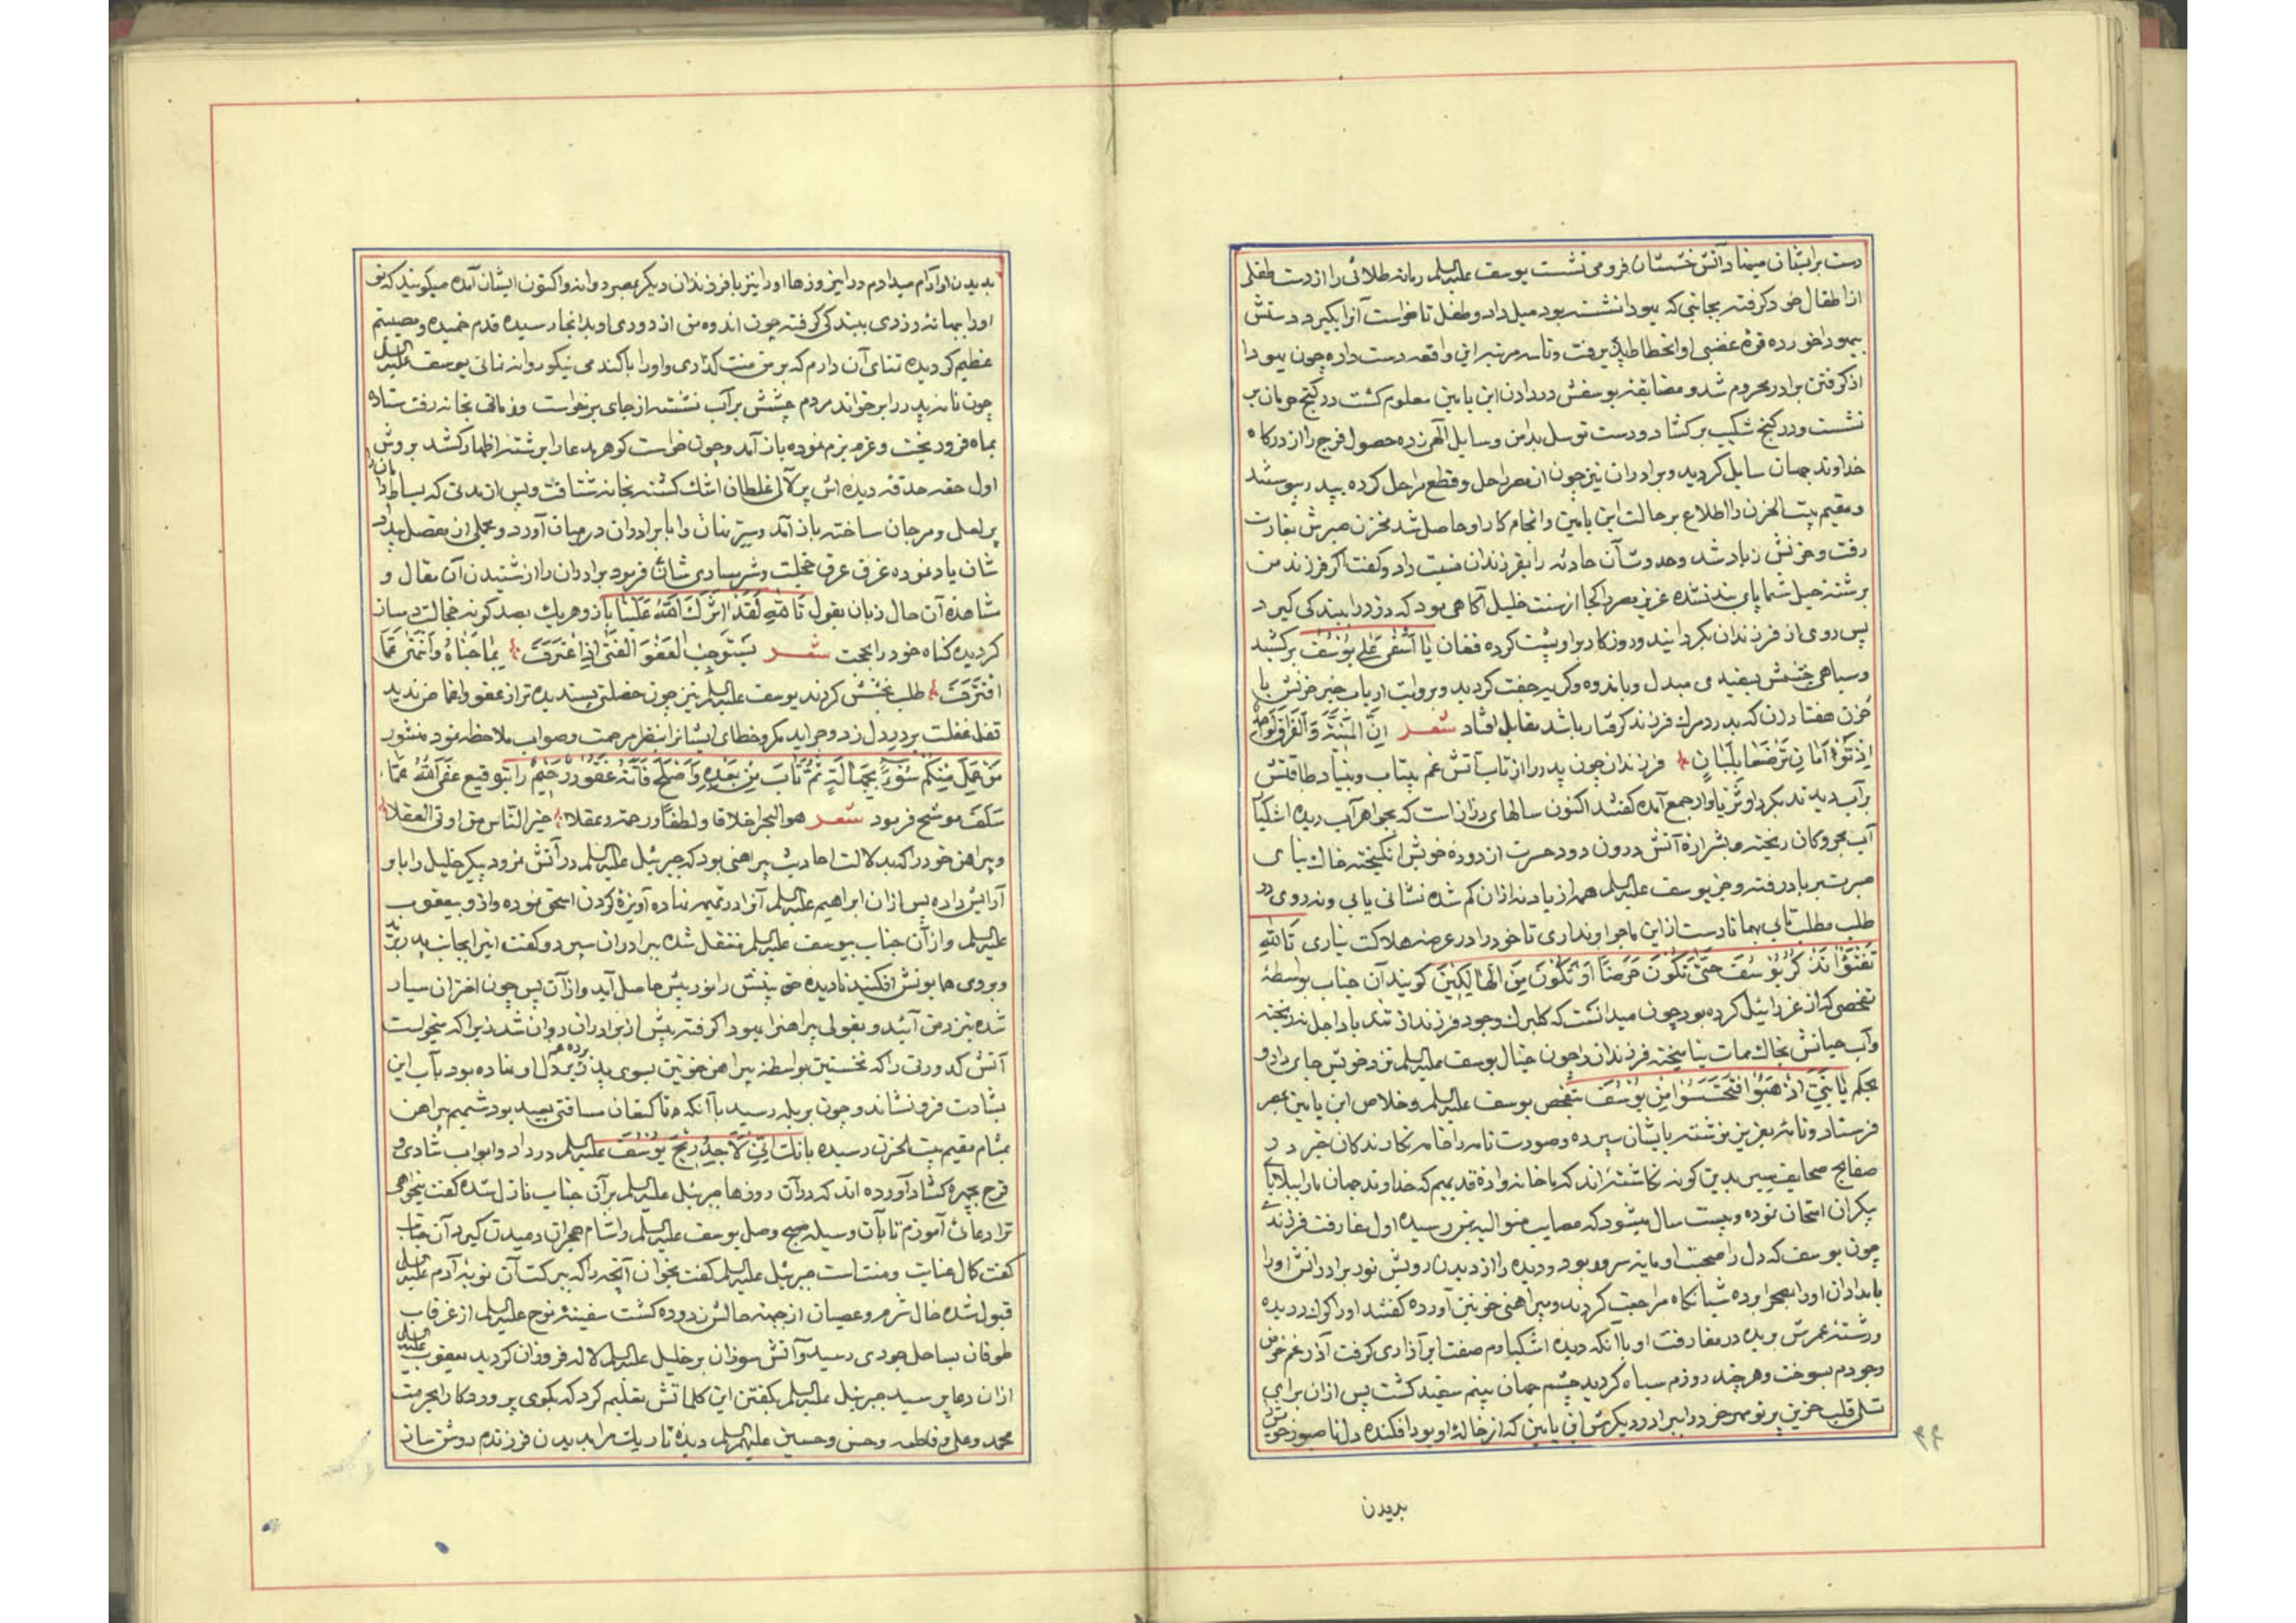 دست برایشان مینهاد آتش خشمشان فرو می نشست یوسف علیه السلم رمانه طلائی را از دست طفلی
از اطفال خود گرفته بجانبی که یهودا نشسته بود میل داد و طفل تا خواست آنرا بگیرد دستش
بیهودا خورده قوهٔ غضبی او انحطاط پذیرفت و تا سه مرتبه این واقعه دست داده چون یهودا
از گرفتن برادر محروم شد و مضایقه یوسفش در دادن ابن یامین معلوم گشت در کنج حرمان بر
نشست و در گنج شکیب برگشاد و دست توسل بدامن وسایل الهی زده حصول فرج را از درگاه
خداوند جهان سایل گردید و برادران نیز چون از مصر راحل و قطع مراحل کرده بپدر پیوستند
و مقیم بیت الحزن را اطلاع بر حالت ابن یامین و انجام کار او حاصل شد مخزن صبرش بغارت
رفت و حزنش زیاد شد و حدوث آن حادثه را بفرزندان نسبت داد و گفت اگر فرزند من
برشته حیل شما پای بند نشده عزیز مصر را کجا از سنت خلیل آگاهی بود که دزد را ببندگی گیرد
پس روی از فرزندان بگردانید و روزگار بر او پشت کرده فغان یا اسفی علی یوسف برکشید
و سیاهی چشمش بسفیدی مبدل و با اندوه و گریه جفت گردید و بروایت ارباب خبر حزنش با
حزن هفتاد زن که بدرد مرگ فرزند گرفتار باشد مقابل افتاد شعر ان المنیة و الفراق لواحد
فرزندان چون پدر را از تاب آتش غم بیتاب و بنیاد طاقتش
برآب دیدند بگرد او ثریاوار جمع آمده گفتند اکنون سالهای دراز است که بجواهر آب دیده اشکبار
آب بحر و کان ریخته و بشرارهٔ آتش درون دود حسرت از دوده خویش انگیخته خاک بنای
صبرت بر باد رفته و جز یوسف علیه السلم همه از یاد نه از آن گم شده نشانی یابی و نه روی در
طلب مطلب تابی همانا دست از این ماجرا و نداری تا خود را در عرضه هلاکت نیاری تالله
تفتؤا تذکر یوسف حتی تکون حرضا او تکون من الهالکین گویند آن جناب بواسطهٔ
تفحصی که از عزرائیل کرده بود چون میدانست که گلبرگ وجود فرزند از تند باد اجل نریخته
و آب حیاتش بخاک ممات نیامیخته فرزندان را چون خیال یوسف علیه السلم نزد خویش جای داد و
بحکم یا بنی اذهبوا فتحسسوا من یوسف بتفحص یوسف علیه السلم و خلاص ابن یامین بمصر
فرستاد و نامه بعزیز نوشته بایشان سپرده و صورت نامه را خامه نگارندگان خبر در
صفایح صحایف سیر بدین گونه نگاشته اند که ما خانوادهٔ قدیمیم که خداوند جهان ما را ببلایای
بیکران امتحان نموده و بیست سال میشود که مصایب متوالیه بمن رسیده اول مفارقت فرزندی
چون یوسف که دل را صحبت او مایه سرور بود و دیده را از دیدن رویش نور برادرانش او را
بامدادان او را بصحرا برده شبانگاه مراجعت کردند و پیراهنی خونین آورده گفتند او را گرگ دریده
و رشته عمرش بریده در مفارقت او با آنکه دیدهٔ اشکبارم صفت ابر آذاری گرفت آذر غم خرمن
وجودم بسوخت و هر چند روزم سیاه گردید چشم جهان بینم سفید گشت پس از آن برای
تسلی قلب حزین پرتو مهر خود را ببرادر دیگرش ابن یامین که از خاله او بود افکنده دل ناصبور خویش را
بدیدن
بدیدن او آرام میدادم در این روزها او را نیز با فرزندان دیگر بمصر روانه و اکنون ایشان آمده میگویند که تو
او را ببهانه دزدی ببندگی گرفته چون اندوه من از دوری او بدانجا رسیده قدم خمیده و مصیبتم
عظیم گردیده تمنای آن دارم که بر من منت گذاری و او را با گندمی نیکو روانه نمائی یوسف علیه السلم
چون نامه پدر را برخواند مردم چشمش بر آب نشسته از جای برخواست و زمانی بخانه رفت ستاره
بماه فرو ریخت و عزم بزم نموده باز آمد و چون خواست گوهر مدعا را برشته اظهار کشد بروش
اول حقه حدقه دیده اش پر لآلی غلطان اشک گشته بخانه شتافت و پس از مدتی که بساط را
پر لعل و مرجان ساخته باز آمد و سر بنان را با برادران در میان آورد و مجملی از مفصل بیداد
شان یاد نموده غرق عرق خجلت و شرمساری شان فرمود برادران را از شنیدن آن مقال و
مشاهده آن حال زبان بقول تالله لقد اثرک الله علینا باز و هر یک بصد گونه خجالت دمساز
گردیده گناه خود را بحجت شعر یستوجب العفو الفتی اذا اعترف بما جناه و انتهی عما
اقترف طلب بخشش کردند یوسف علیه السلم نیز چون خصلتی پسندیده تر از عفو و اغماض ندید
قفل غفلت بر در دل زد و جراید مکر و خطای ایشانرا بنظر مرحمت و صواب ملاحظه نمود منشور
من عمل منکم سوءا بجهالة ثم تاب من بعده و اصلح فانه غفور رحیم را بتوقیع عفی الله عما
سلف موشح فرمود شعر هو البحر اخلاقا و لطفا و رحمة و عقلا خیر الناس من اوتی العقلا
و پیراهن خود را که بدلالت احادیث پیراهنی بود که جبرئیل علیه السلم در آتش نمرود پیکر خلیل را باو
آرایش داده پس از آن ابراهیم علیه السلم آنرا در تمیمه نهاده آویزهٔ گردن اسحق نموده و از او بیعقوب
علیه السلم و از آن جناب بیوسف علیه السلم منتقل شده ببرادران سپرد و گفت اینرا بجانب پدر برید
و بروی همایونش افکنید تا دیده حق بینش را نور بینش حاصل آید و از آن پس چون اختران سیار
شده بنزد من آئید و بقولی پیراهنرا یهودا گرفته پیش از برادران روان شد زیرا که میخواست
آتش کدورتی را که نخستین بواسطه پیراهن خونین بسوی پدر برده در دل او نهاده بود بآب این
بشارت فرو نشاند و چون برمله رسید با آنکه تا کنعان مسافتی بعید بود شمیم پیراهن
بمشام مقیم بیت الحزن رسیده بانک انی لاجد ریح یوسف علیه السلم در داد و ابواب شادی و
فرح بچهره گشاد آورده اند که در آن روزها جبرئیل علیه السلم بر آن جناب نازل شده گفت میخواهی
ترا دعائی آموزم تا بآن وسیله صبح وصل یوسف علیه السلم را شام هجران دمیدن گیرد آن جناب
گفت کمال عنایت و منت است جبرئیل علیه السلم گفت بخوان آنچه را که ببرکت آن توبهٔ آدم علیه السلم
قبول شده خال شرم و عصیان از جبهه حالش زدوده گشت سفینه نوح علیه السلم از غرقاب
طوفان بساحل جودی رسید و آتش سوزان بر خلیل علیه السلم لاله فروزان گردید یعقوب علیه السلم
از آن دعا پرسید جبرئیل علیه السلم بگفتن این کلماتش تعلیم کرد که بگوی پروردگارا بحرمت
محمد و علی و فاطمه و حسن و حسین علیهم السلم دیدهٔ تاریک مرا بدیدن فرزندم روشن ساز